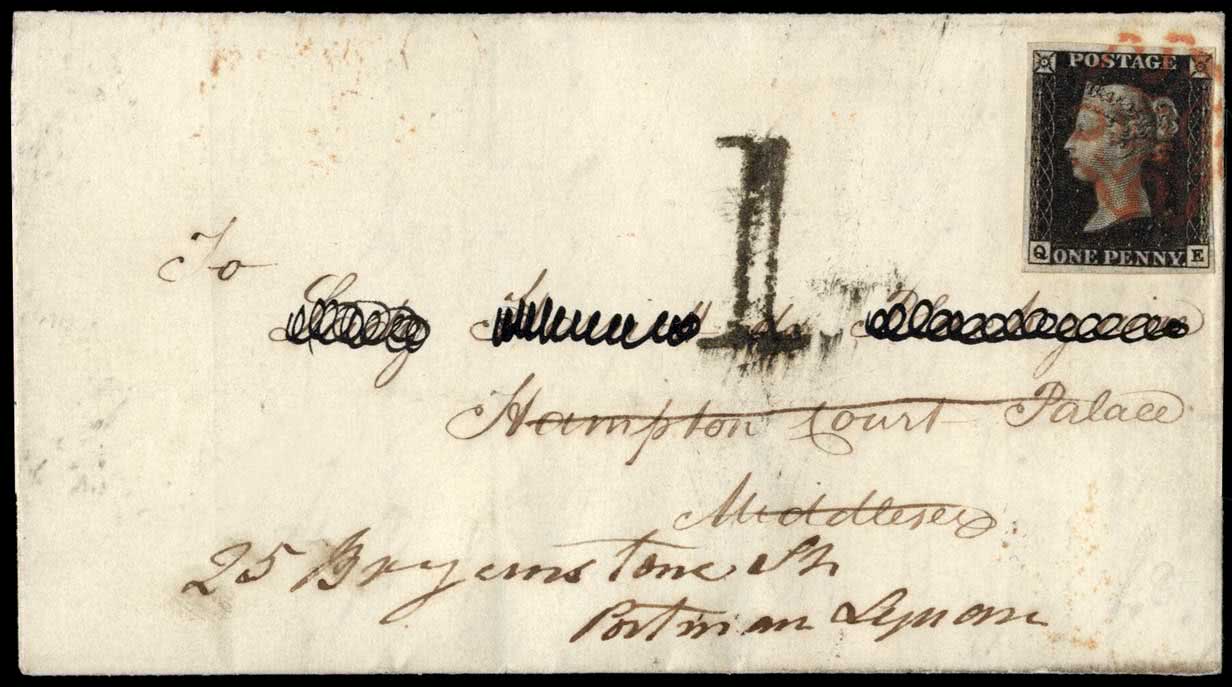 POSTAGE
Q ONE PENNY E
1
To
Hampton Court Palace
Middlesex
25 Bryanstone St
Portman Square